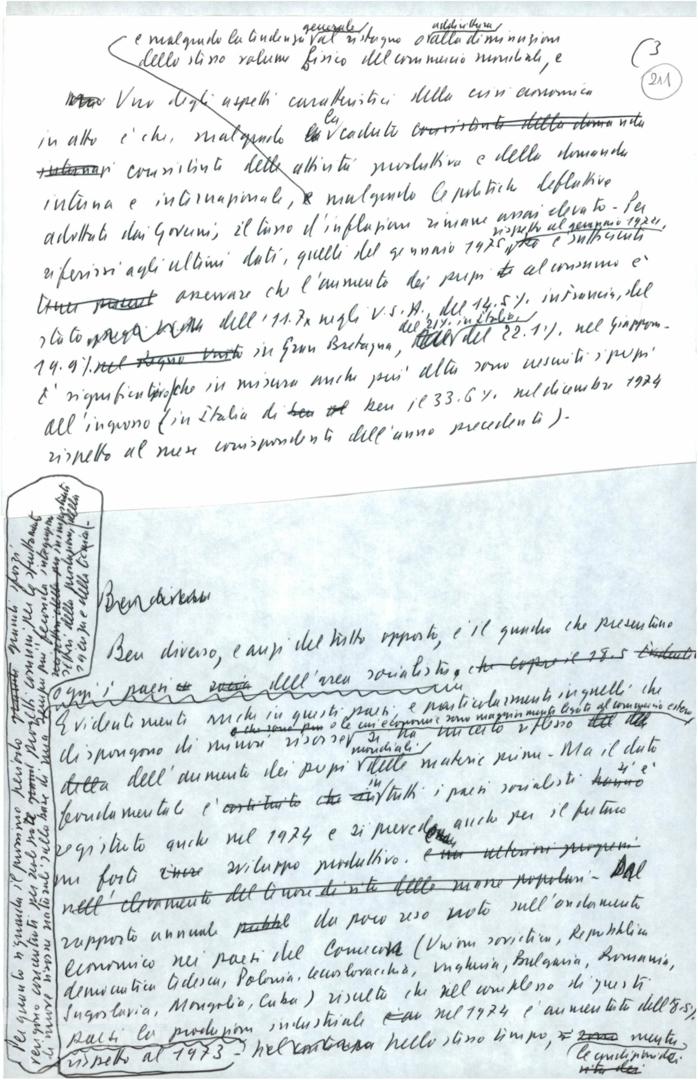 generale addirittura
e malgrado la tendenza al ristagno o alla diminuzione
dello stesso volume fisico del commercio mondiale, e
(3
211
Uno degli aspetti caratteristici della crisi economica
in atto è che, malgrado la caduta consistente della domanda
interna consistente delle attività produttive e della domanda
interna e internazionale, e malgrado le politiche deflattive
adottate dai Governi, il tasso d'inflazione rimane assai elevato. Per
rispetto al gennaio 1974,
riferirsi agli ultimi dati, quelli del gennaio 1975, è sufficiente
osservare che l'aumento dei prezzi al consumo è
stato dell'11.7% negli U.S.A., del 14.5% in Francia, del
del 21% in Italia,
19.9% nel Regno Unito in Gran Bretagna, del 22.1% nel Giappone.
E' significativo che in misura anche più alta sono cresciuti i prezzi
all'ingrosso (in Italia di ben il 33.6% nel dicembre 1974
rispetto al mese corrispondente dell'anno precedente).
Ben diverso
Ben diverso, e anzi del tutto opposto, è il quadro che presentano
oggi i paesi dell'area socialista, che copre il 18.5
Evidentemente anche in questi paesi, e particolarmente in quelli che
o le cui economie sono maggiormente legate al commercio estero
dispongono di minori risorse si ha un certo riflesso
mondiali
dell'aumento dei prezzi delle materie prime. Ma il dato
fondamentale è costituito che in tutti i paesi socialisti si è
registrato anche nel 1974 e si prevede anche per il futuro
un forte sviluppo produttivo. e un ulteriore progresso
nell'elevamento del tenore di vita delle masse popolari. Dal
rapporto annuale da poco reso noto sull'andamento
economico nei paesi del Comecon (Unione sovietica, Repubblica
democratica tedesca, Polonia, Cecoslovacchia, Ungheria, Bulgaria, Romania,
Jugoslavia, Mongolia, Cuba) risulta che nel complesso di questi
paesi la produzione industriale nel 1974 è aumentata dell'8.5%
rispetto al 1973. nello stesso tempo, mentre
le condizioni di
vita dei
Per quanto riguarda il prossimo periodo grandi sforzi
vengono concentrati per realizzare progetti comuni per lo sfruttamento
di nuove risorse naturali sulla base di una
settori della produzione, della